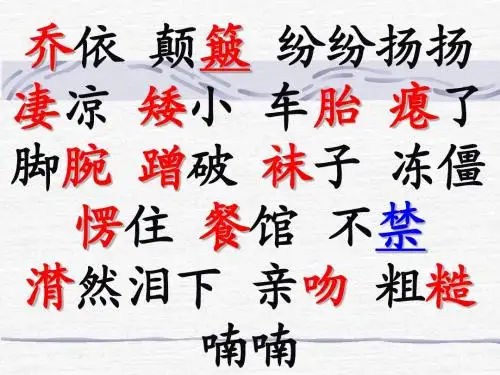 乔依 颠簸 纷纷扬扬
凄凉 矮小 车胎 瘪了
脚腕 蹭破 袜子 冻僵
愣住 餐馆 不禁
潸然泪下 亲吻 粗糙
喃喃